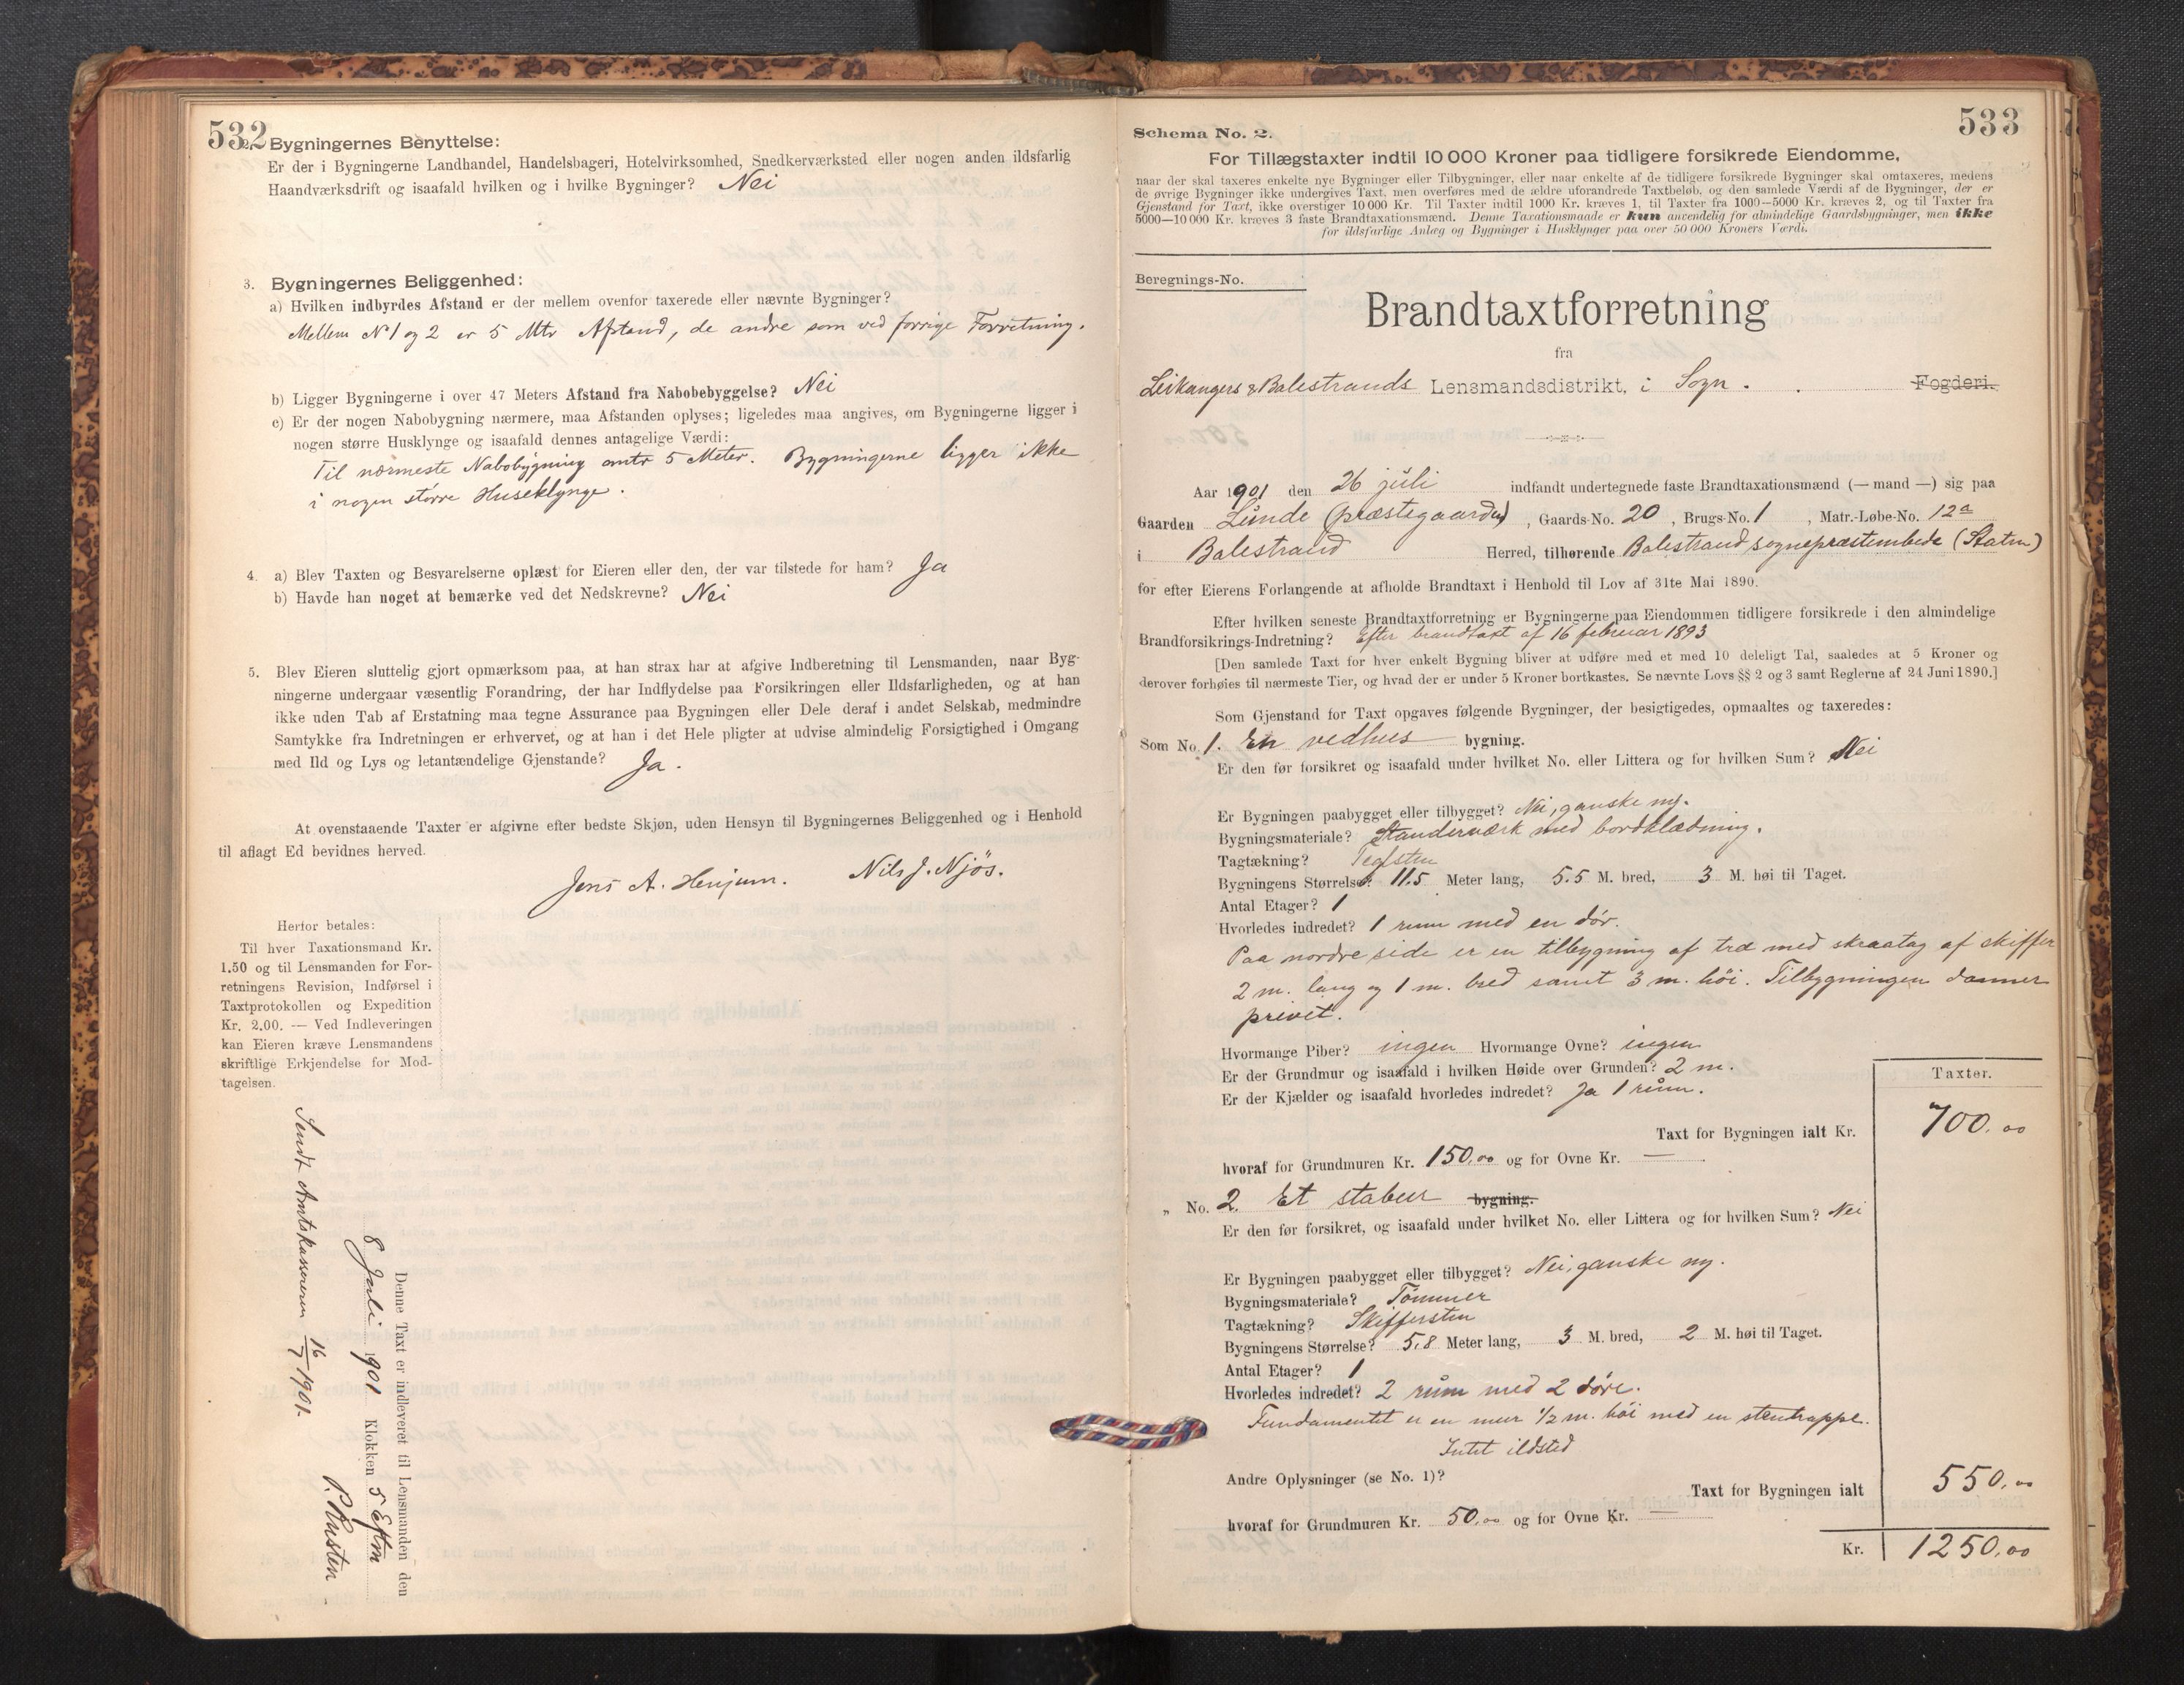 532
2. Bygningernes Benyttelse:
Er der i Bygningerne Landhandel, Handelsbageri, Hotelvirksomhed, Snedkerværksted eller nogen anden ildsfarlig
Haandværksdrift og isaafald hvilken og i hvilke Bygninger? Nei
3. Bygningernes Beliggenhed:
a) Hvilken indbyrdes Afstand er der mellem ovenfor taxerede eller nævnte Bygninger?
Mellem N 1 og 2 er 5 Mtr Afstand, de andre som ved forrige Forretning.
b) Ligger Bygningerne i over 47 Meters Afstand fra Nabobebyggelse? Nei
c) Er der nogen Nabobygning nærmere, maa Afstanden oplyses; ligeledes maa angives, om Bygningerne ligger i
nogen større Husklynge og isaafald dennes antagelige Værdi:
Til nærmeste Nabobygning omtr 5 Meter. Bygningerne ligger ikke
i nogen större Huseklynge.
4. a) Blev Taxten og Besvarelserne oplæst for Eieren eller den, der var tilstede for ham? Ja
b) Havde han noget at bemærke ved det Nedskrevne? Nei
5. Blev Eieren sluttelig gjort opmærksom paa, at han strax har at afgive Indberetning til Lensmanden, naar Byg-
ningerne undergaar væsentlig Forandring, der har Indflydelse paa Forsikringen eller Ildsfarligheden, og at han
ikke uden Tab af Erstatning maa tegne Assurance paa Bygningen eller Dele deraf i andet Selskab, medmindre
Samtykke fra Indretningen er erhvervet, og at han i det Hele pligter at udvise almindelig Forsigtighed i Omgang
med Ild og Lys og letantændelige Gjenstande? Ja.
At ovenstaaende Taxter er afgivne efter bedste Skjøn, uden Hensyn til Bygningernes Beliggenhed og i Henhold
til aflagt Ed bevidnes herved.
Jens A. Henjum. Nils J. Njös.
Herfor betales:
Til hver Taxationsmand Kr.
1.50 og til Lensmanden for For-
retningens Revision, Indførsel i
Taxtprotokollen og Expedition
Kr. 2.00. — Ved Indleveringen
kan Eieren kræve Lensmandens
skriftlige Erkjendelse for Mod-
tagelsen.
Denne Taxt er indleveret til Lensmanden den
8 Juli 1901 Klokken 5 Eftm
P. Husten
Sendt Amtskassereren 16/7 1901.
533
Schema No. 2.
For Tillægstaxter indtil 10 000 Kroner paa tidligere forsikrede Eiendomme,
naar der skal taxeres enkelte nye Bygninger eller Tilbygninger, eller naar enkelte af de tidligere forsikrede Bygninger skal omtaxeres, medens
de øvrige Bygninger ikke undergives Taxt, men overføres med de ældre uforandrede Taxtbeløb, og den samlede Værdi af de Bygninger, der er
Gjenstand for Taxt, ikke overstiger 10 000 Kr. Til Taxter indtil 1000 Kr. kræves 1, til Taxter fra 1000—5000 Kr. kræves 2, og til Taxter fra
5000—10 000 Kr. kræves 3 faste Brandtaxationsmænd. Denne Taxationsmaade er kun anvendelig for almindelige Gaardsbygninger, men ikke
for ildsfarlige Anlæg og Bygninger i Husklynger paa over 50 000 Kroners Værdi.
Beregnings-No.
Brandtaxtforretning
fra
Leikangers & Balestrands Lensmandsdistrikt, i Sogn. Fogderi.
Aar 1901 den 26 juli indfandt undertegnede faste Brandtaxationsmænd (— mand —) sig paa
Gaarden Lunde (præstegaarden), Gaards-No. 20, Brugs-No. 1, Matr.-Løbe-No. 12a
i Balestrand Herred, tilhørende Balestrand sognepræstembede (Staten)
for efter Eierens Forlangende at afholde Brandtaxt i Henhold til Lov af 31te Mai 1890.
Efter hvilken seneste Brandtaxtforretning er Bygningerne paa Eiendommen tidligere forsikrede i den almindelige
Brandforsikrings-Indretning? Efter brandtaxt af 16 februar 1893
[Den samlede Taxt for hver enkelt Bygning bliver at udføre med et med 10 deleligt Tal, saaledes at 5 Kroner og
derover forhøies til nærmeste Tier, og hvad der er under 5 Kroner bortkastes. Se nævnte Lovs §§ 2 og 3 samt Reglerne af 24 Juni 1890.]
Som Gjenstand for Taxt opgaves følgende Bygninger, der besigtigedes, opmaaltes og taxeredes:
Som No. 1. En vedhus bygning.
Er den før forsikret og isaafald under hvilket No. eller Littera og for hvilken Sum? Nei
Er Bygningen paabygget eller tilbygget? Nei, ganske ny.
Bygningsmateriale? Standerværk med bordklædning.
Tagtækning? Teglsten
Bygningens Størrelse? 11.5 Meter lang, 5.5 M. bred, 3 M. høi til Taget.
Antal Etager? 1
Hvorledes indredet? 1 rum med en dør.
Paa nordre side er en tilbygning af træ med skraatag af skiffer
2 m. lang og 1 m. bred samt 3 m. höi. Tilbygningen danner
privet.
Hvormange Piber? ingen Hvormange Ovne? ingen
Er der Grundmur og isaafald i hvilken Høide over Grunden? 2 m.
Er der Kjælder og isaafald hvorledes indredet? Ja 1 rum.
Taxter.
Taxt for Bygningen ialt Kr. 700.00
hvoraf for Grundmuren Kr. 150.00 og for Ovne Kr. —
„ No. 2. Et stabur bygning.
Er den før forsikret, og isaafald under hvilket No. eller Littera og for hvilken Sum? Nei
Er Bygningen paabygget eller tilbygget? Nei, ganske ny.
Bygningsmateriale? Tömmer
Tagtækning? Skiffersten
Bygningens Størrelse? 5,8 Meter lang, 3 M. bred, 2 M. høi til Taget.
Antal Etager? 1
Hvorledes indredet? 2 rum med 2 döre.
Fundamentet er en mur 1/2 m. höi med en stentrappe.
Intet ildsted
Andre Oplysninger (se No. 1)?
Taxt for Bygningen ialt 550.00
hvoraf for Grundmuren Kr. 50.00 og for Ovne Kr. —
Kr. 1250.00